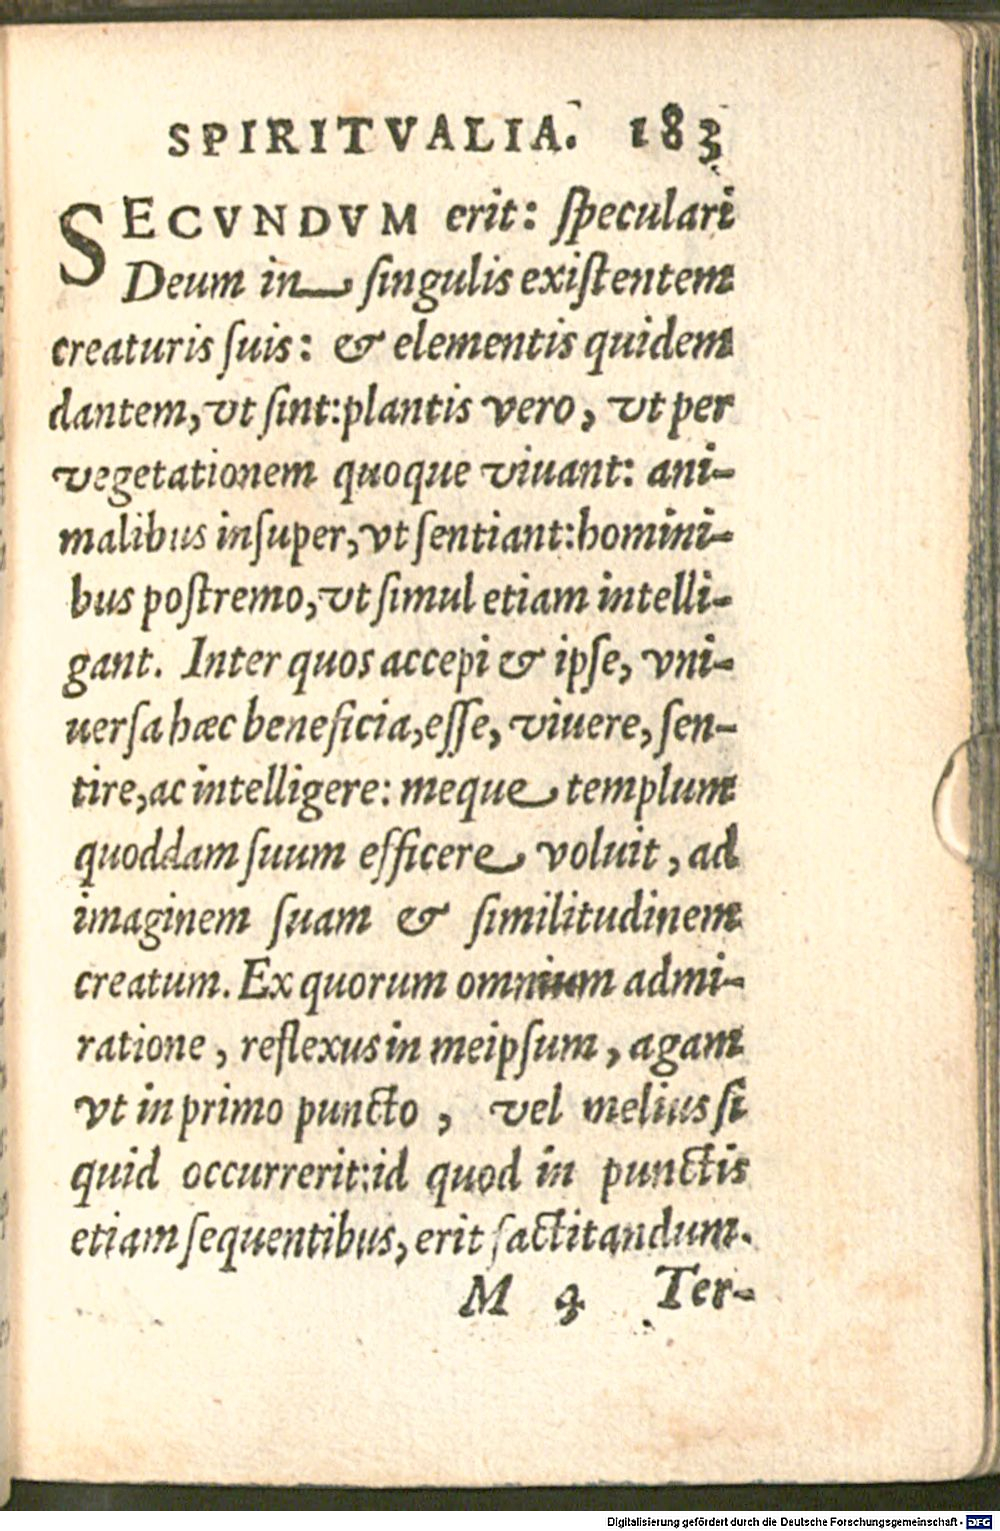 SPIRITVALIA. 183
SECVNDVM erit: ſpeculari
Deum in ſingulis exiſtentem
creaturis ſuis: & elementis quidem
dantem, vt ſint: plantis vero, vt per
vegetationem quoque viuant: ani-
malibus inſuper, vt ſentiant: homini-
bus poſtremo, vt ſimul etiam intelli-
gant. Inter quos accepi & ipſe, vni-
uerſa hæc beneficia, eſſe, viuere, ſen-
tire, ac intelligere: meque templum
quoddam ſuum efficere voluit, ad
imaginem ſuam & ſimilitudinem
creatum. Ex quorum omnium admi-
ratione, reflexus in meipſum, agam
vt in primo puncto, vel melius ſi
quid occurrerit: id quod in punctis
etiam ſequentibus, erit factitandum.
M 4 Ter-
Digitalisierung gefördert durch die Deutsche Forschungsgemeinschaft - DFG